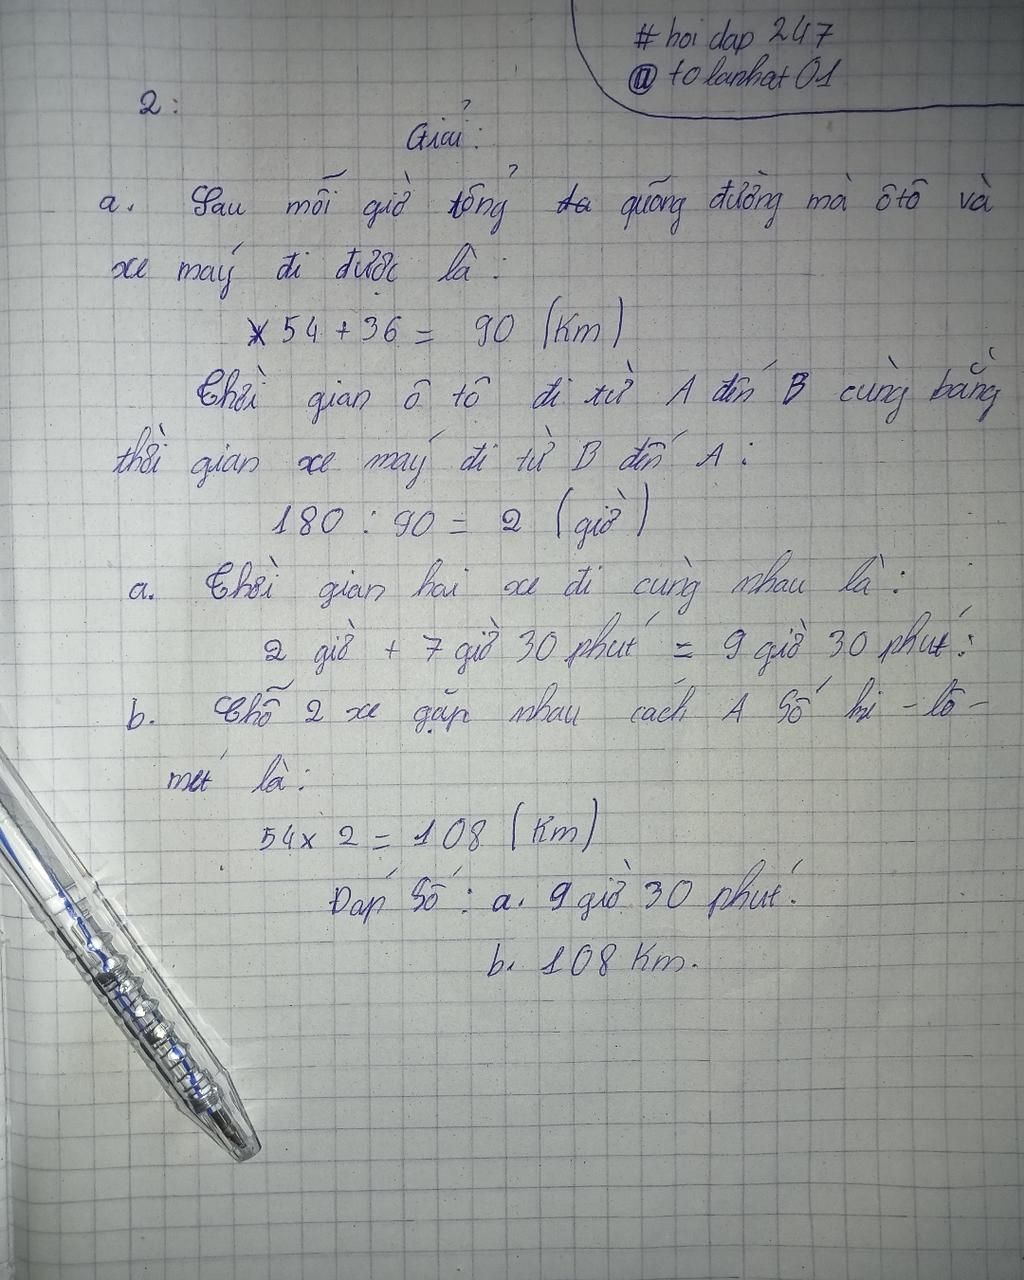 # hoi dap 247
@ tolanhat01
2:
Giải:
a. Sau mỗi giờ tổng quãng đường mà ô tô và
xe máy đi được là:
54 + 36 = 90 (Km)
Thời gian ô tô đi từ A đến B cùng bằng
thời gian xe máy đi từ B đến A:
180 : 90 = 2 (giờ)
a. Thời gian hai xe đi cùng nhau là:
2 giờ + 7 giờ 30 phút = 9 giờ 30 phút.
b. Chỗ 2 xe gặp nhau cách A số ki - lô -
mét là:
54 x 2 = 108 (Km)
Đáp số: a. 9 giờ 30 phút.
b. 108 Km.